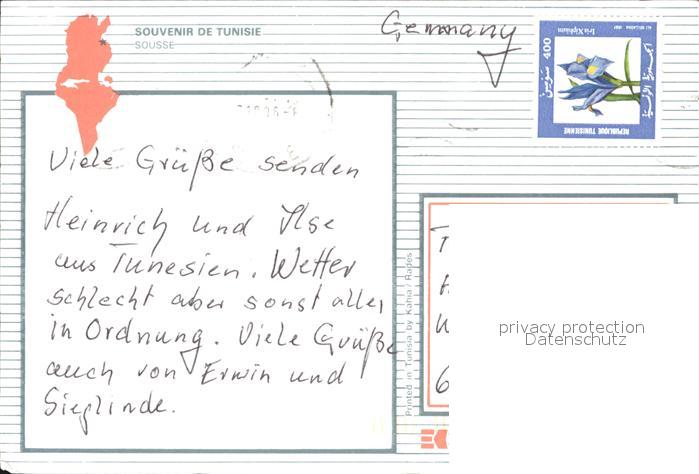 SOUVENIR DE TUNISIE
SOUSSE
Germany
400
Iris Xiphium
REPUBLIQUE TUNISIENNE
Viele Grüße senden
Heinrich und Ilse
aus Tunesien. Wetter
schlecht aber sonst alles
in Ordnung. Viele Grüße
auch von Erwin und
Sieglinde.
Printed in Tunisia by Kahia / Rades
privacy protection
Datenschutz